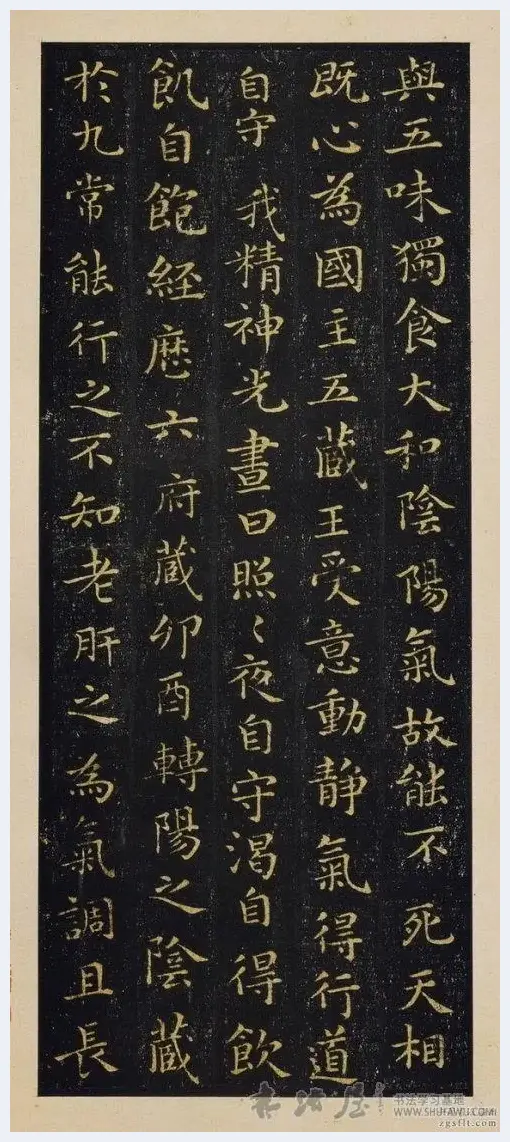 與五味獨食大和陰陽氣故能不死天相
既心為國主五藏王受意動靜氣得行道
自守我精神光晝日照〻夜自守渴自得飲
飢自飽経歷六府藏卯酉轉陽之陰藏
於九常能行之不知老肝之為氣調且長
书法屋
书法学习基地
WWW.SHUFAWU.COM
zgsflt.com